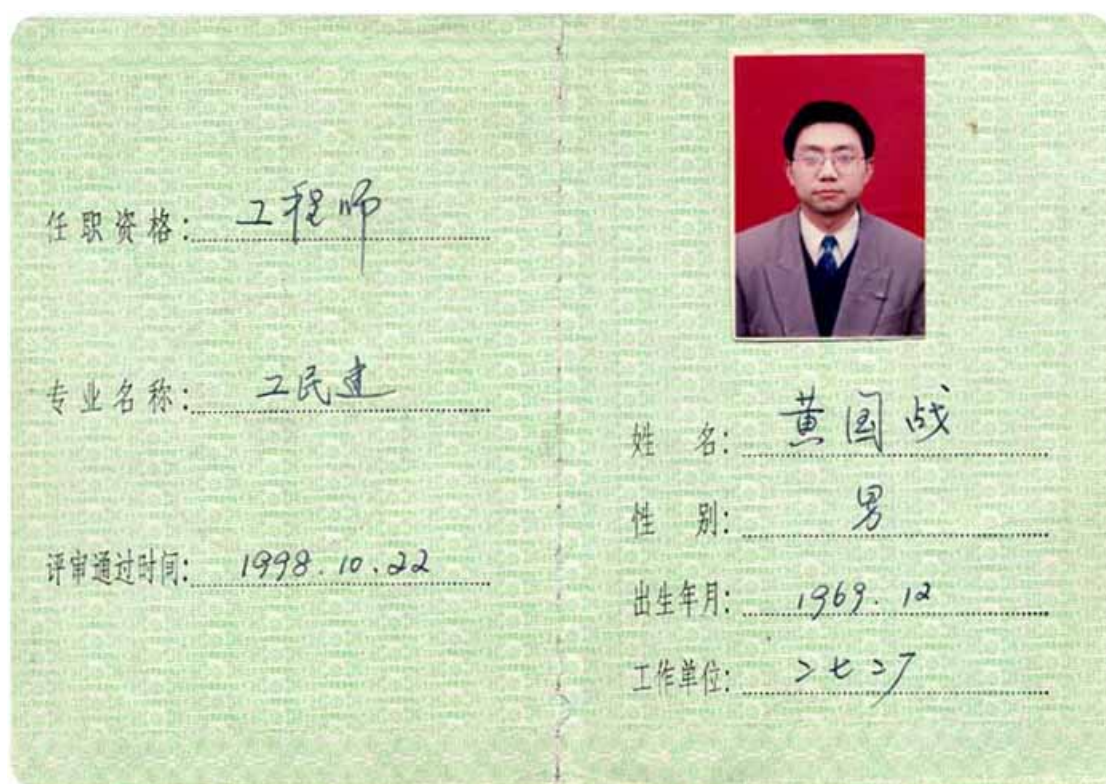 任职资格: 工程师
专业名称: 工民建
评审通过时间: 1998.10.22
姓 名: 黄国战
性 别: 男
出生年月: 1969.12
工作单位: 二七二厂